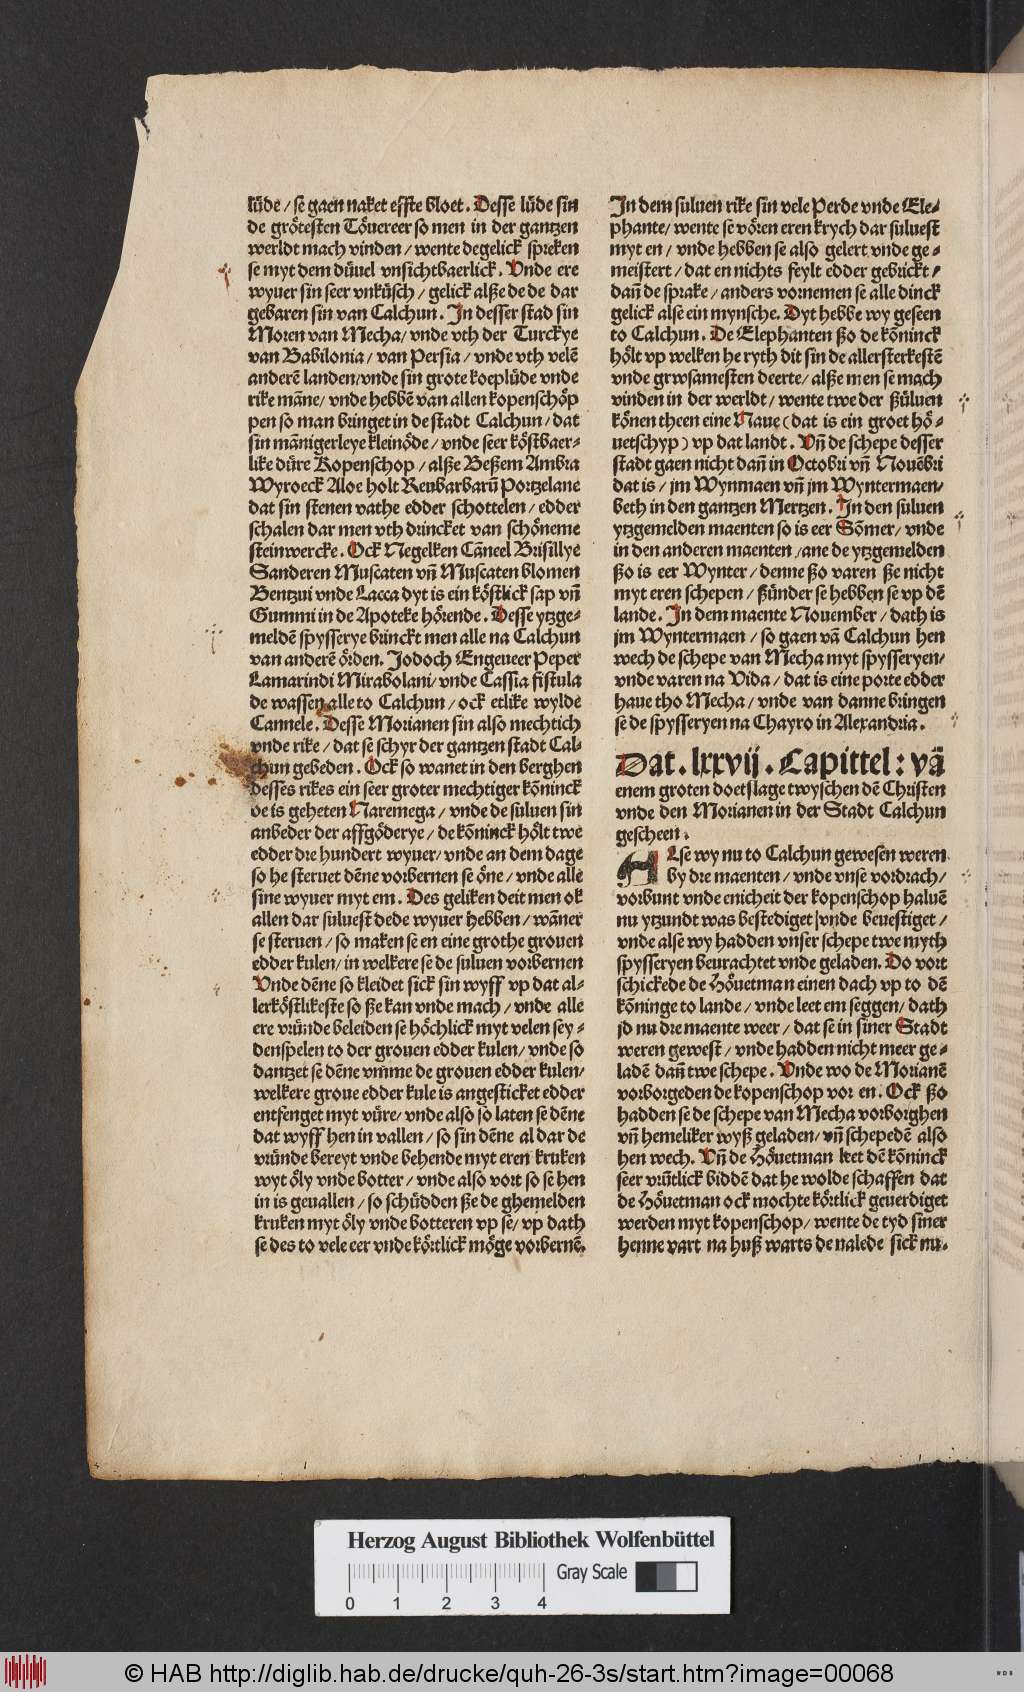 lüde / se gaen naket effte bloet. Desse lüde sin
de grötesten Töuereer so men in der gantzen
werldt mach vinden / wente degelick spreken
se myt dem düuel vnsichtbaerlick. Vnde ere
wyuer sin seer vnküsch / gelick alße de de dar
gebaren sin van Calchun. In desser stad sin
Moren van Mecha / vnde vth der Turckye
van Babilonia / van Persia / vnde vth velē
anderē landen / vnde sin grote koeplüde vnde
rike māne / vnde hebbē van allen kopenschöp
pen so man bringet in de stadt Calchun / dat
sin mānigerleye kleinöde / vnde seer köstbaer-
like düre Kopenschop / alße Beßem Ambra
Wyroeck Aloe holt Reubarbarū Portzelane
dat sin stenen vathe edder schottelen / edder
schalen dar men vth drincket van schöneme
steinwercke. Ock Negelken Cāneel Brisillye
Sanderen Muscaten vn̄ Muscaten blomen
Bentzui vnde Lacca dyt is ein köstlick sap vn̄
Gummi in de Apoteke hörende. Desse ytzge-
meldē spysserye brinckt men alle na Calchun
van anderē örden. Jodoch Engeueer Peper
Lamarindi Mirabolani / vnde Cassia fistula
de wassen alle to Calchun / ock etlike wylde
Cannele. Desse Morianen sin also mechtich
vnde rike / dat se schyr der gantzen stadt Cal-
chun gebeden. Ock so wanet in den berghen
desses rikes ein seer groter mechtiger kōninck
de is geheten Naremega / vnde de suluen sin
anbeder der affgöderye / de kōninck hölt twe
edder dre hundert wyuer / vnde an dem dage
so he steruet dēne vorbernen se öne / vnde alle
sine wyuer myt em. Des geliken deit men ok
allen dar suluest dede wyuer hebben / wāner
se steruen / so maken se en eine grothe grouen
edder kulen / in welkere se de suluen vorbernen
Vnde dēne so kleidet sick sin wyff vp dat al-
lerköstlikeste so ße kan vnde mach / vnde alle
ere vründe beleiden se höchlick myt velen sey-
denspelen to der grouen edder kulen / vnde so
dantzet se dēne vm̄me de grouen edder kulen /
welkere groue edder kule is angesticket edder
entfenget myt vüre / vnde also so laten se dēne
dat wyff hen in vallen / so sin dēne al dar de
vründe bereyt vnde behende myt eren kruken
wyt öly vnde botter / vnde also vort so se hen
in is geuallen / so schüdden ße de ghemelden
kruken myt öly vnde botteren vp se / vp dath
se des to vele eer vnde körtlick möge vorbernē.
In dem suluen rike sin vele Perde vnde Ele-
phante / wente se vören eren krych dar suluest
myt en / vnde hebben se also gelert vnde ge-
meistert / dat en nichts feylt edder gebrickt /
dan̄ de sprake / anders vornemen se alle dinck
gelick alse ein mynsche. Dyt hebbe wy geseen
to Calchun. De Elephanten ßo de kōninck
hölt vp welken he ryth dit sin de allersterkestē
vnde grwsamesten deerte / alße men se mach
vinden in der werldt / wente twe der ßüluen
könen theen eine Naue (dat is ein groet hö-
uetschyp) vp dat landt. Vn̄ de schepe desser
stadt gaen nicht dan̄ in Octobri vn̄ Nouēbri
dat is / jm Wynmaen vn̄ jm Wyntermaen /
beth in den gantzen Mertzen. In den suluen
ytzgemelden maenten so is eer Sōmer / vnde
in den anderen maenten / ane de ytzgemelden
ßo is eer Wynter / denne ßo varen ße nicht
myt eren schepen / ßünder se hebben se vp dē
lande. In dem maente Nouember / dath is
jm Wyntermaen / so gaen vā Calchun hen
wech de schepe van Mecha myt spysseryen /
vnde varen na Vida / dat is eine porte edder
haue tho Mecha / vnde van danne bringen
se de spysseryen na Chayro in Alexandria.
Dat. lxxvij. Capittel: vā
enem groten doetslage twyschen dē Christen
vnde den Morianen in der Stadt Calchun
gescheen.
Alse wy nu to Calchun gewesen weren
by dre maenten / vnde vnse vordrach /
vorbunt vnde enicheit der kopenschop haluē
nu ytzundt was bestediget / vnde beuestiget /
vnde alse wy hadden vnser schepe twe myth
spysseryen beurachtet vnde geladen. Do vort
schickede de Höuetman einen dach vp to dē
kōninge to lande / vnde leet em seggen / dath
jd nu dre maente weer / dat se in siner Stadt
weren gewest / vnde hadden nicht meer ge-
ladē dan̄ twe schepe. Vnde wo de Morianē
vorborgeden de kopenschop vor en. Ock ßo
hadden se de schepe van Mecha vorborghen
vn̄ hemeliker wyß geladen / vn̄ schepedē also
hen wech. Vn̄ de Höuetman leet dē kōninck
seer vrūtlick biddē dat he wolde schaffen dat
de Höuetman ock mochte körtlick geuerdiget
werden myt kopenschop / wente de tyd siner
henne vart na huß warts de nalede sick nu.
Herzog August Bibliothek Wolfenbüttel
Gray Scale
0 1 2 3 4
© HAB http://diglib.hab.de/drucke/quh-26-3s/start.htm?image=00068
WDB